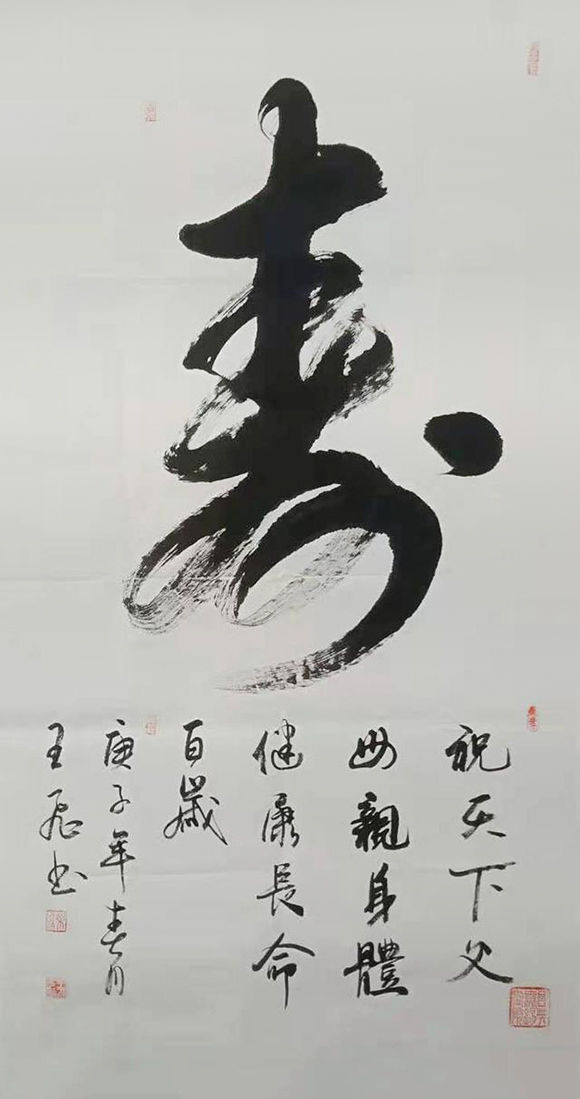 寿
祝天下父
母親身體
健康長命
百歲
庚子年春月
王飛书